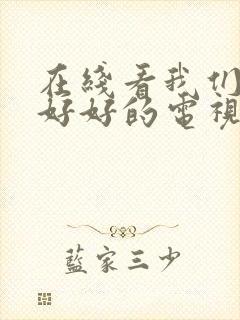 在綫看我们
好好的電視
藍家三少